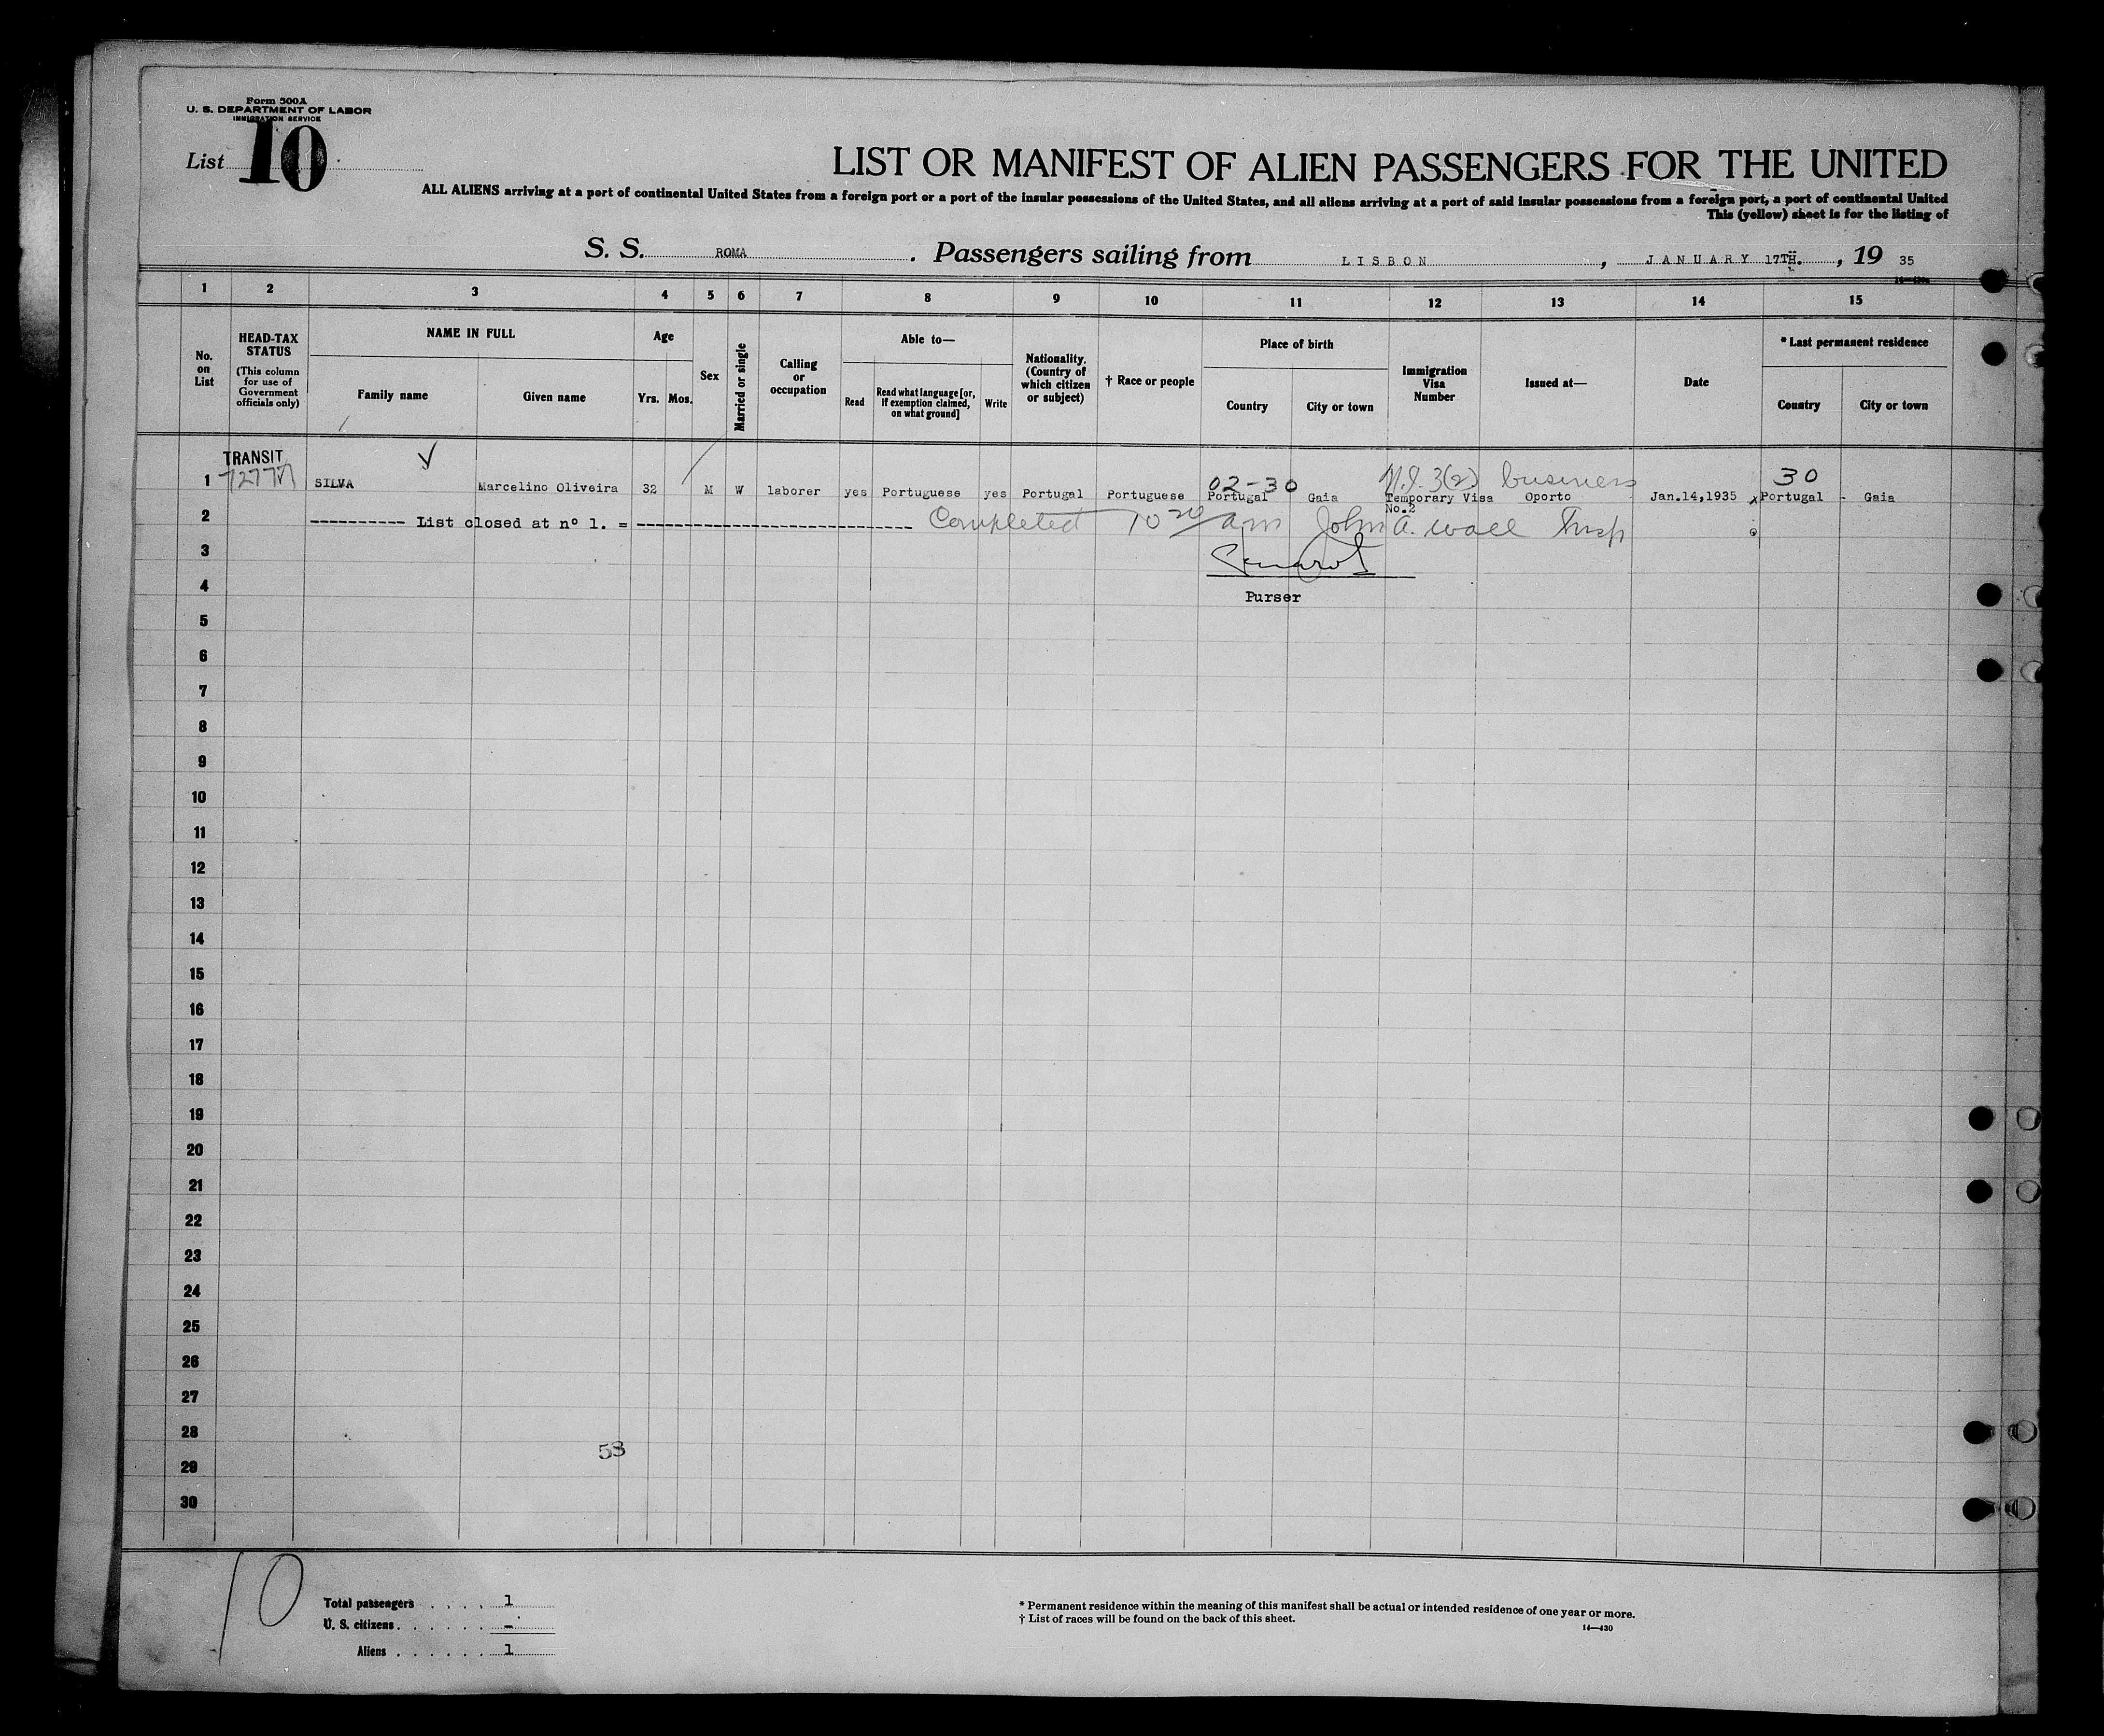 Form 500A
U. S. DEPARTMENT OF LABOR
IMMIGRATION SERVICE
List 10
LIST OR MANIFEST OF ALIEN PASSENGERS FOR THE UNITED
ALL ALIENS arriving at a port of continental United States from a foreign port or a port of the insular possessions of the United States, and all aliens arriving at a port of said insular possessions from a foreign port, a port of continental United
This (yellow) sheet is for the listing of
S. S. ROMA . Passengers sailing from LISBON , JANUARY 17TH. , 19 35
1 2 3 4 5 6 7 8 9 10 11 12 13 14 15
No. on List
HEAD-TAX STATUS
(This column for use of Government officials only)
NAME IN FULL
Family name
Given name
Age
Yrs.
Mos.
Sex
Married or single
Calling or occupation
Able to—
Read
Read what language [or, if exemption claimed, on what ground]
Write
Nationality. (Country of which citizen or subject)
† Race or people
Place of birth
Country
City or town
Immigration Visa Number
Issued at—
Date
* Last permanent residence
Country
City or town
TRANSIT
02-30 3(2) business 30
1 SILVA Marcelino Oliveira 32 M W laborer yes Portuguese yes Portugal Portuguese Portugal Gaia Temporary Visa No.2 Oporto Jan.14,1935 x Portugal - Gaia
2 ---------- List closed at nº 1. = ---------------------------- Completed 10 am John A. Wall Insp
3
4
Purser
5
6
7
8
9
10
11
12
13
14
15
16
17
18
19
20
21
22
23
24
25
26
27
28
53
29
30
10
Total passengers . . . . 1
U. S. citizens . . . . . . -
Aliens . . . . . . 1
* Permanent residence within the meaning of this manifest shall be actual or intended residence of one year or more.
† List of races will be found on the back of this sheet.
14—430